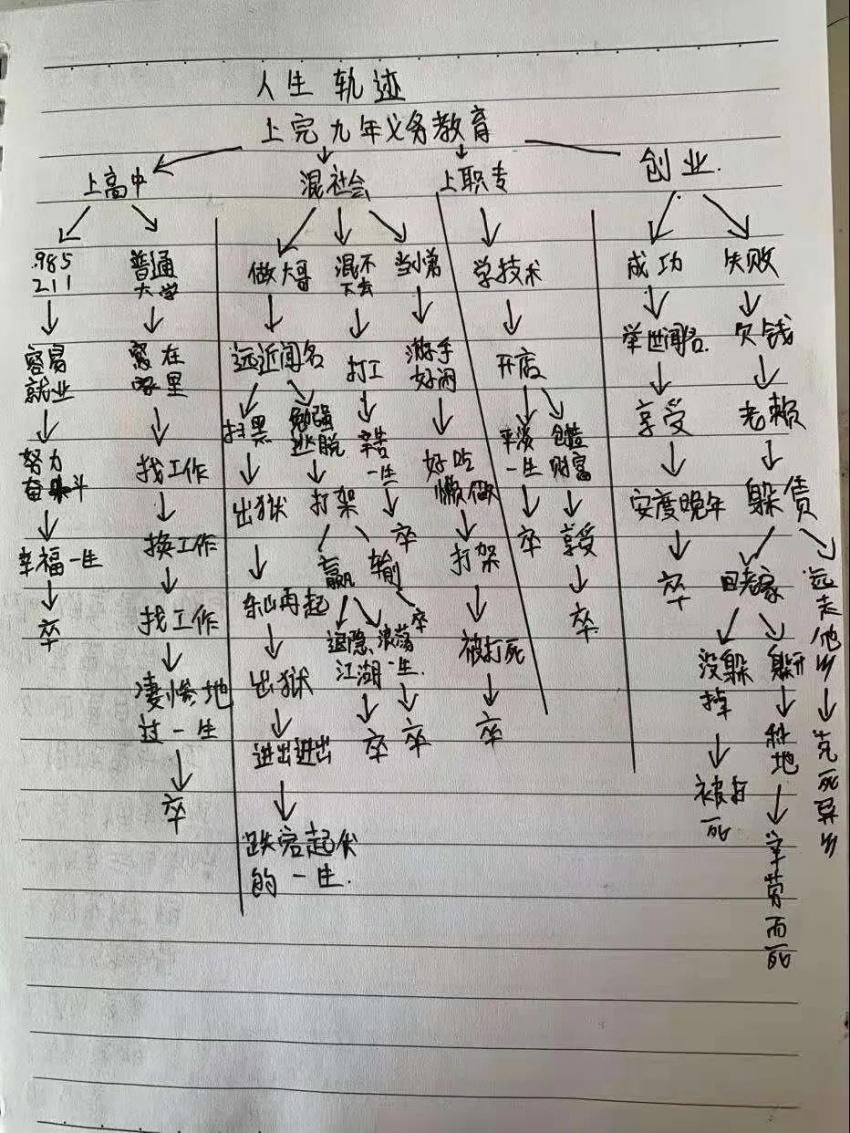 人生轨迹
上完九年义务教育
上高中
985
211
容易
就业
努力
奋斗
幸福一生
卒
普通
大学
窝在
家里
找工作
换工作
找工作
凄惨地
过一生
卒
混社会
做大哥
远近闻名
扫黑
出狱
东山再起
出狱
进出进出
跌宕起伏
的一生.
勉强
逃脱
打架
赢
退隐
江湖
卒
浪荡
一生.
卒
输
卒
混不
下去
打工
辛苦
一生
卒
当小弟
游手
好闲
好吃
懒做
打架
被打死
卒
上职专
学技术
开店
平淡
一生
卒
创造
财富
享受
卒
创业.
成功
举世闻名.
享受
安度晚年
卒
失败
欠钱
老赖
躲债
回老家
没躲
掉
被打
死
躲开
种地
辛劳而死
远走他乡
客死异乡